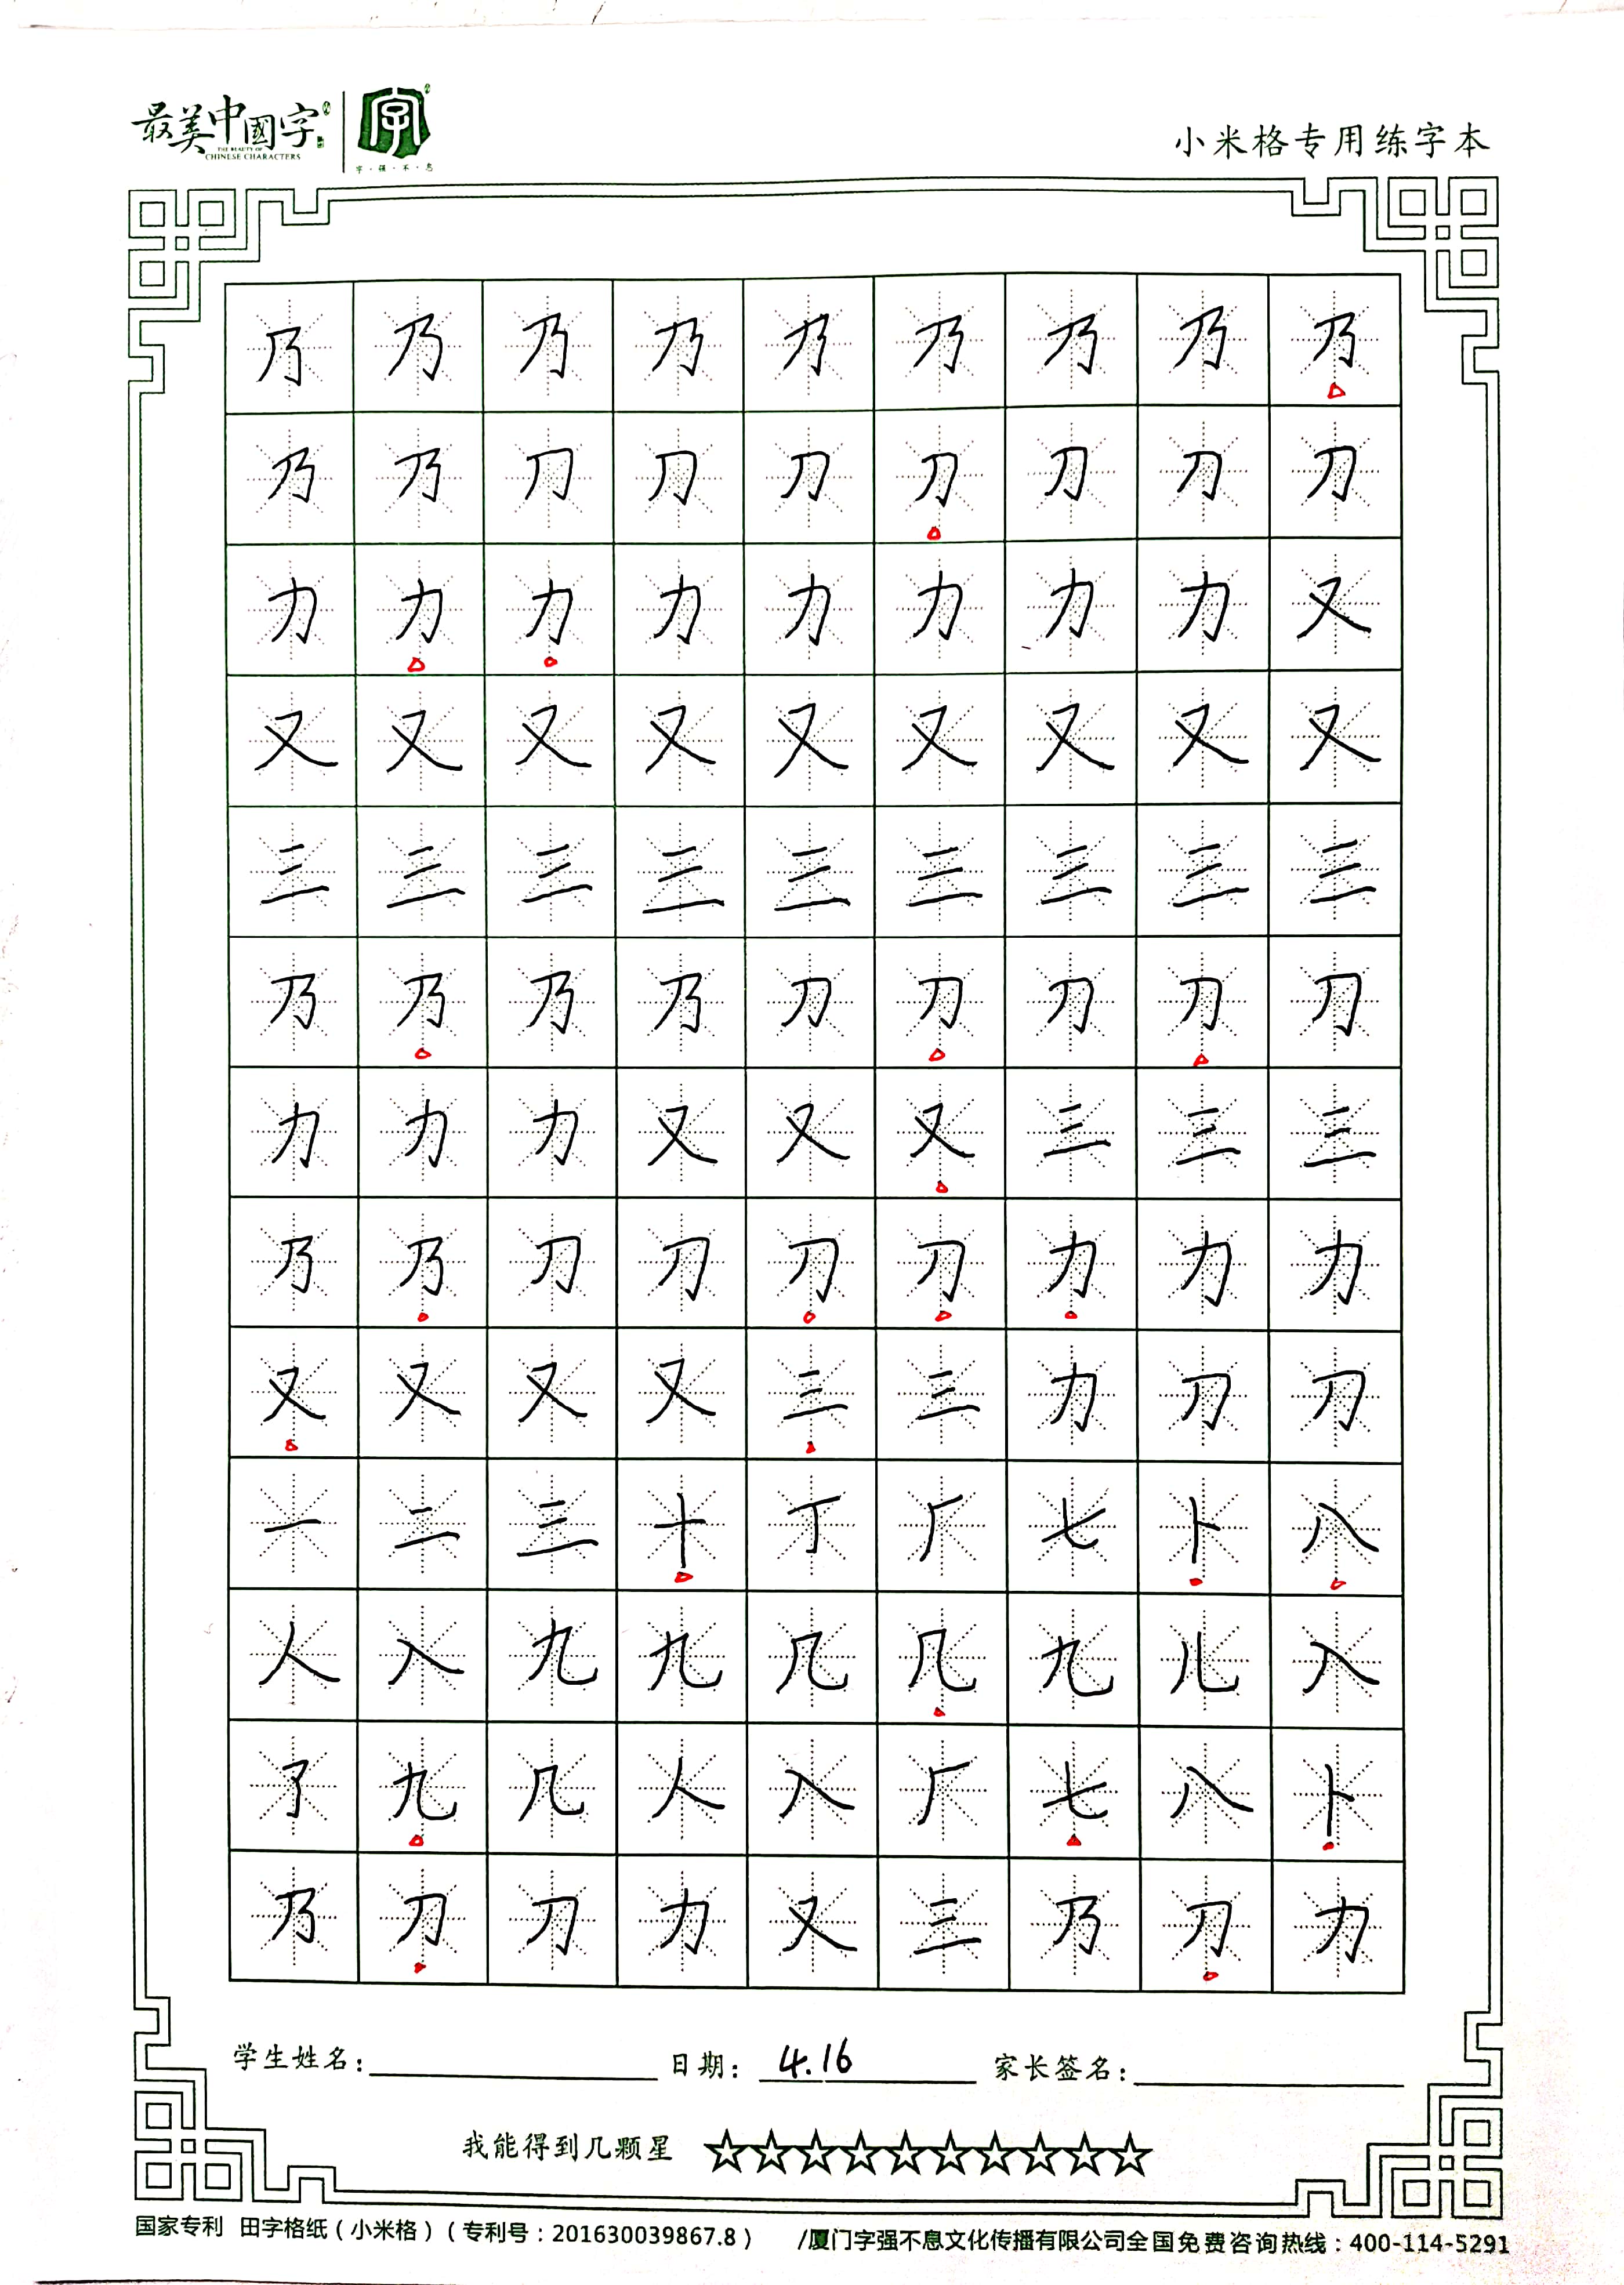 最美中國字
THE BEAUTY OF
CHINESE CHARACTERS
字
字·强·不·息
小米格专用练字本
乃 乃 乃 乃 乃 乃 乃 乃 乃
乃 乃 刀 刀 刀 刀 刀 刀 刀
力 力 力 力 力 力 力 力 又
又 又 又 又 又 又 又 又 又
三 三 三 三 三 三 三 三 三
乃 乃 乃 乃 刀 刀 刀 刀 刀
力 力 力 又 又 又 三 三 三
乃 乃 刀 刀 刀 刀 力 力 力
又 又 又 又 三 三 力 刀 刀
一 二 三 十 丁 厂 七 卜 八
人 入 九 九 几 几 九 儿 入
了 九 几 人 入 厂 七 八 卜
乃 刀 刀 力 又 三 乃 刀 力
学生姓名： 日期：4.16 家长签名：
我能得到几颗星 ☆☆☆☆☆☆☆☆☆☆
国家专利 田字格纸（小米格）（专利号：201630039867.8） /厦门字强不息文化传播有限公司全国免费咨询热线：400-114-5291